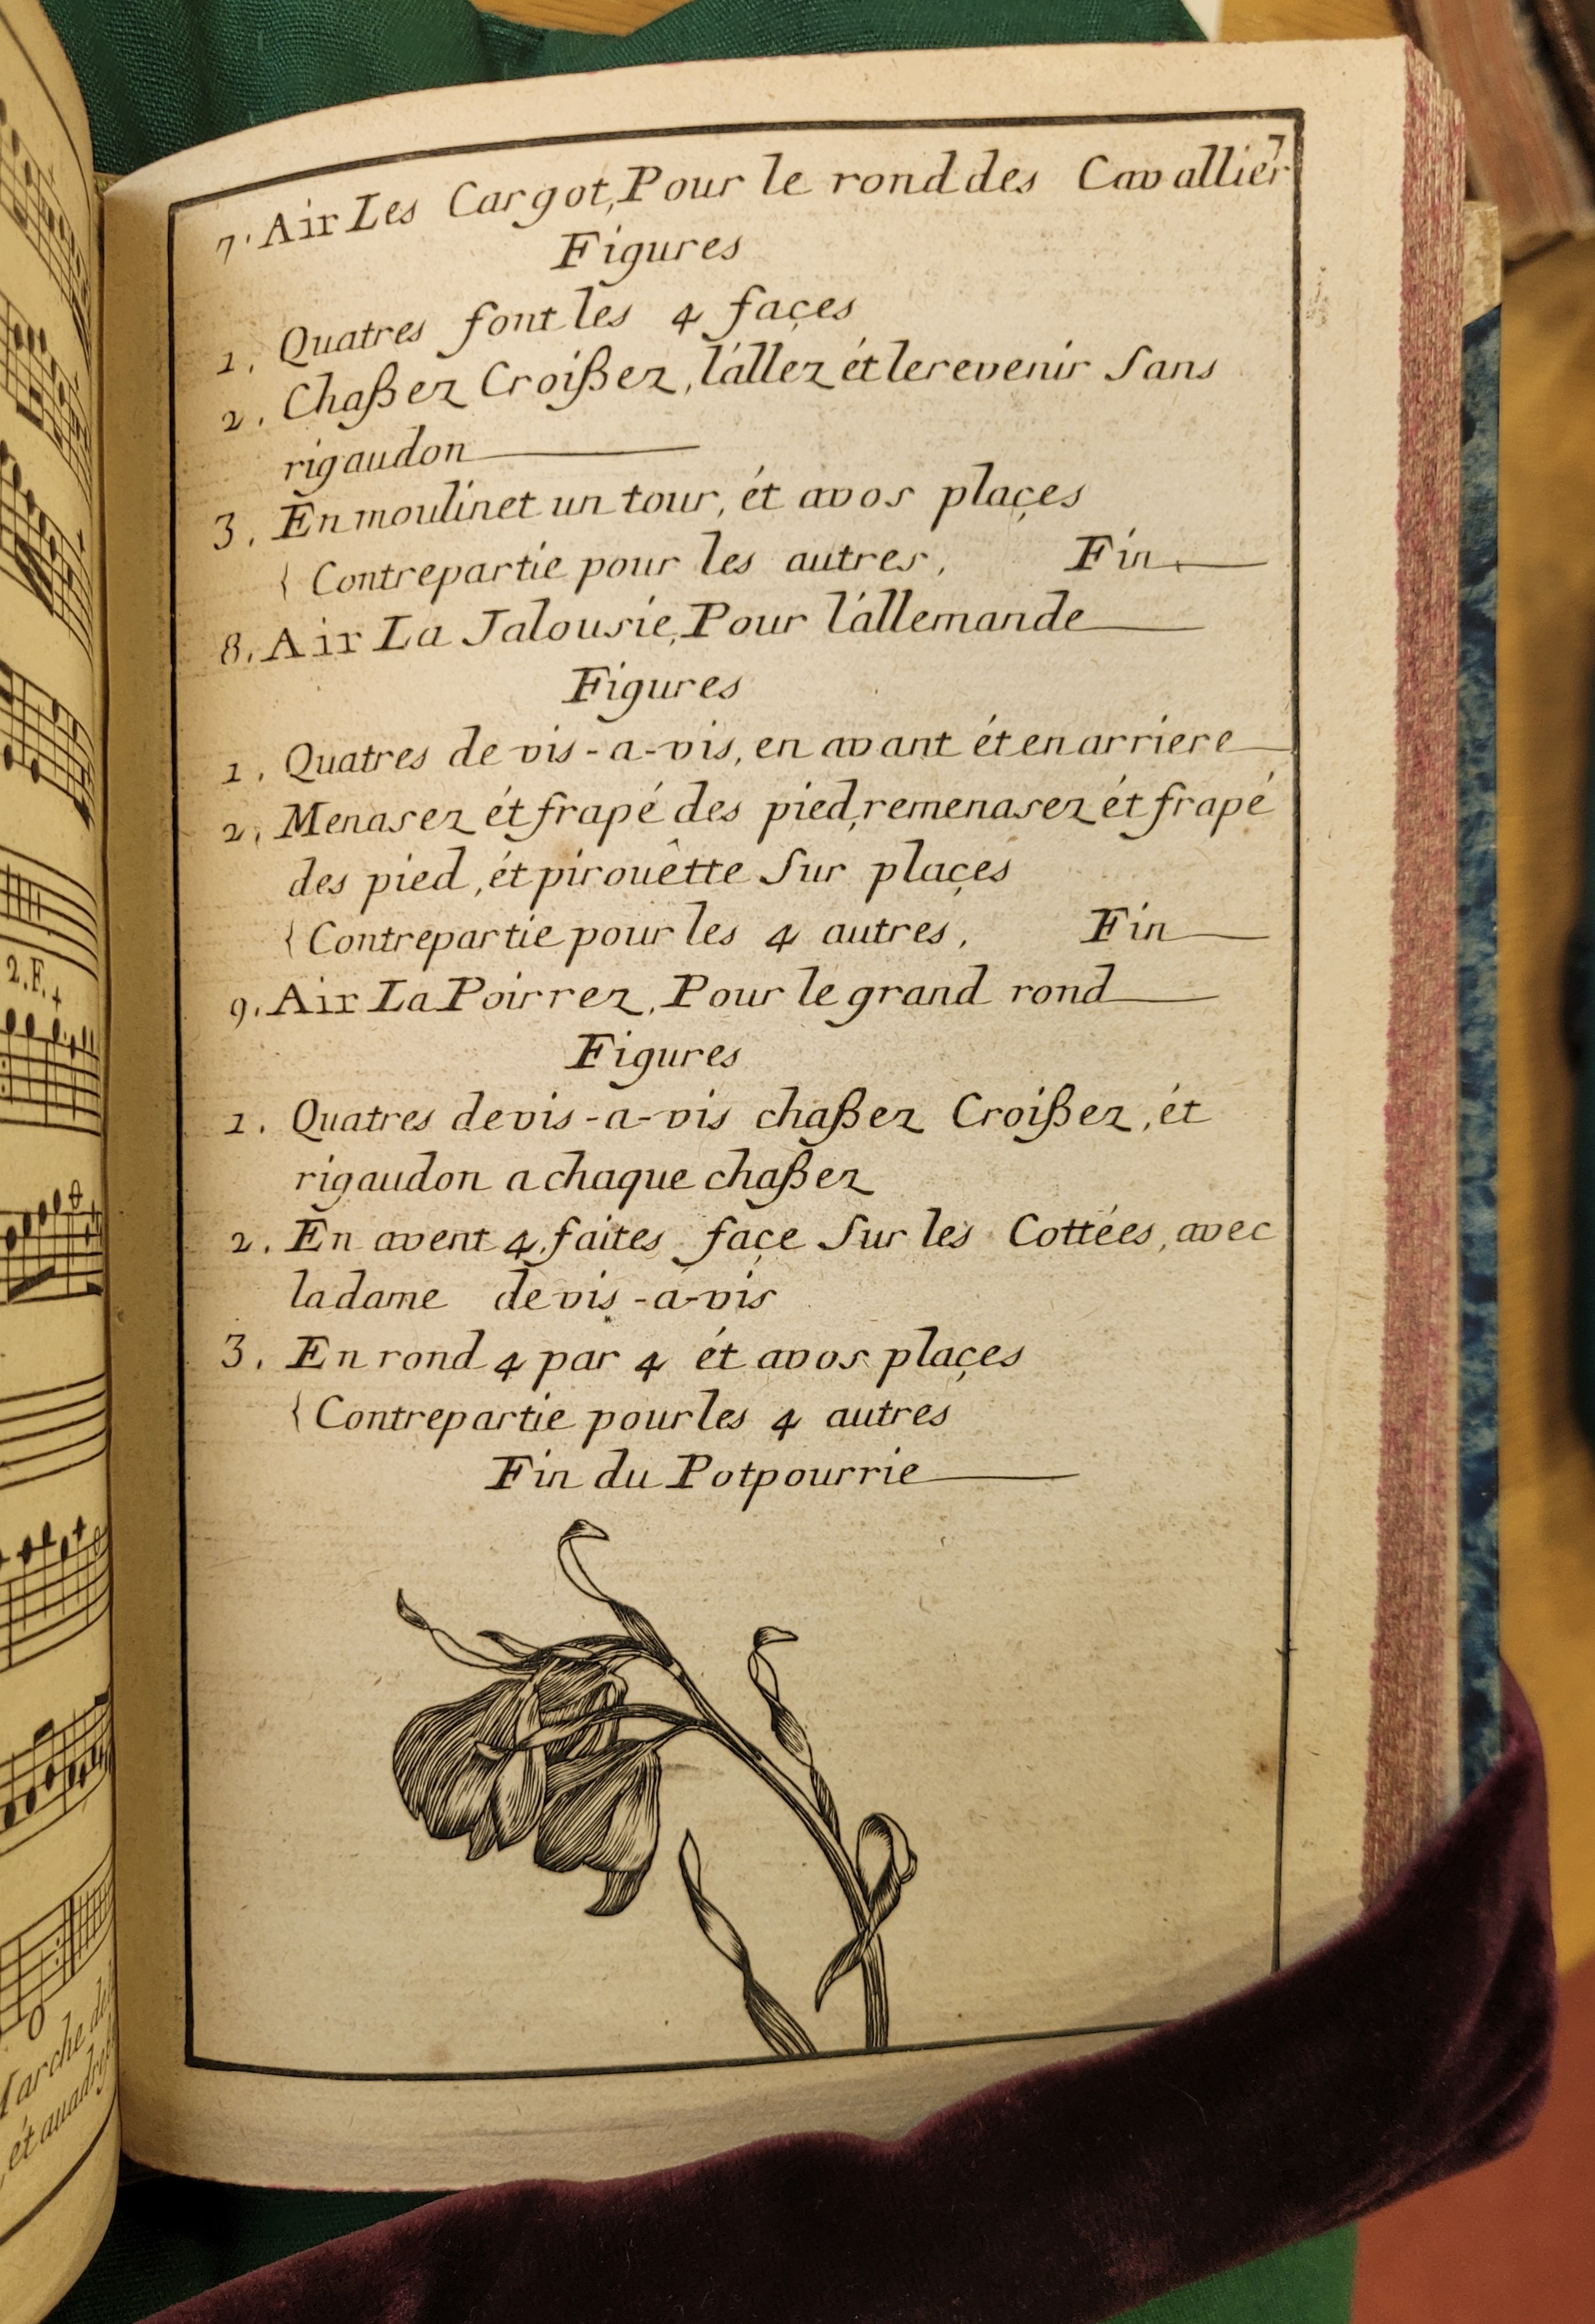 7
7. Air Les Cargot, Pour le rond des Cavallier
Figures
1. Quatres font les 4 façes
2. Chaßez Croißez, l'állez ét le revenir Sans
rigaudon
3. En moulinet un tour, ét a vos plaçes
{ Contrepartie pour les autres, Fin.
8. Air La Jalousie, Pour l'állemande
Figures
1. Quatres de vis-a-vis, en avant ét en arriere
2. Menasez ét frapé des pied, remenasez ét frapé
des pied, ét pirouêtte Sur plaçes
{ Contrepartie pour les 4 autres, Fin
9. Air La Poirrez, Pour le grand rond
Figures
1. Quatres de vis-a-vis chaßez Croißez, ét
rigaudon a chaque chaßez
2. En avent 4. faites façe Sur les Cottées, avec
la dame de vis-a-vis
3. En rond 4 par 4 ét a vos plaçes
{ Contrepartie pour les 4 autres
Fin du Potpourrie
2.F.